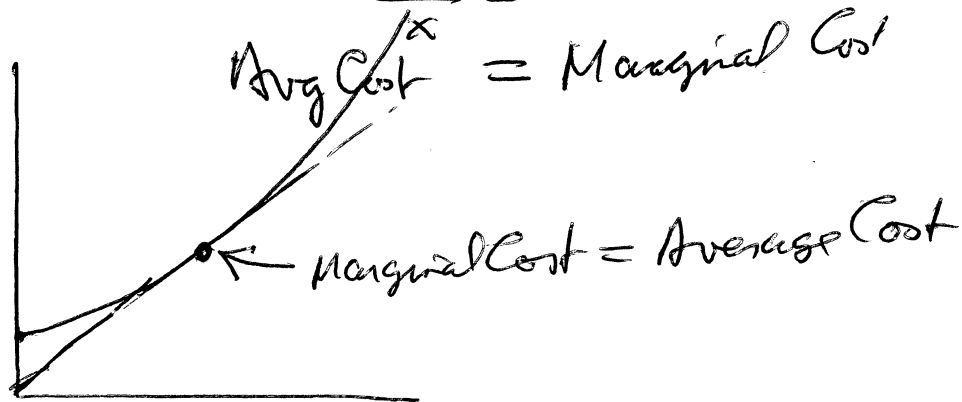 x
Avg Cost = Marginal Cost
Marginal Cost = Average Cost